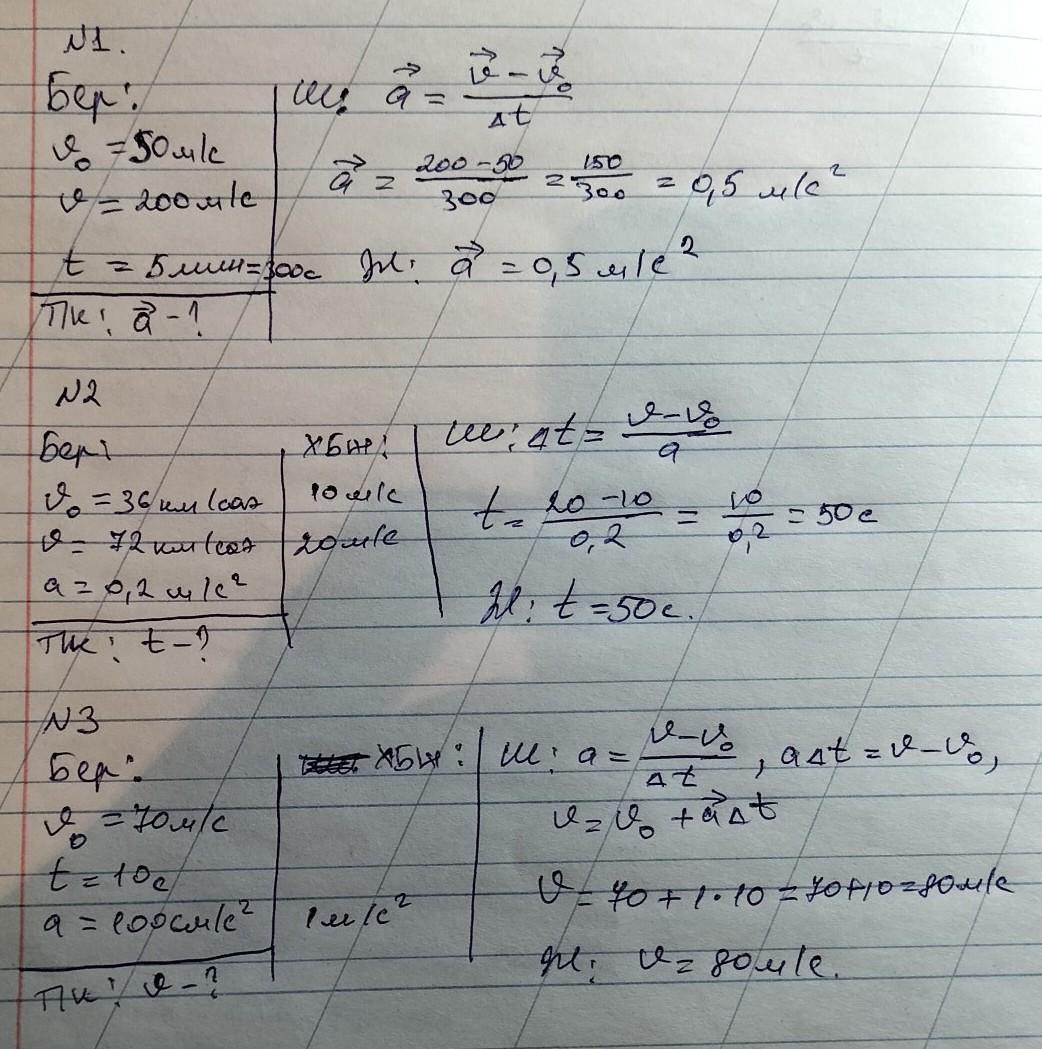 N1.
Бер:
v₀ = 50 м/с
v = 200 м/с
t = 5 мин = 300с
Тк: a⃗ - ?
Ш: a⃗ = (v⃗ - v⃗₀)/Δt
a⃗ = (200 - 50)/300 = 150/300 = 0,5 м/с²
Ж: a⃗ = 0,5 м/с²
N2
Бер:
v₀ = 36 км/сағ
v = 72 км/сағ
a = 0,2 м/с²
Тк: t - ?
ХБЖ:
10 м/с
20 м/с
Ш: Δt = (v - v₀)/a
t = (20 - 10)/0,2 = 10/0,2 = 50 с
Ж: t = 50 с.
N3
Бер:
v₀ = 70 м/с
t = 10с
a = 100 см/с²
Тк: v - ?
ХБЖ:
1 м/с²
Ш: a = (v - v₀)/Δt, aΔt = v - v₀,
v = v₀ + a⃗Δt
v = 70 + 1·10 = 70+10 = 80 м/с
Ж: v = 80 м/с.